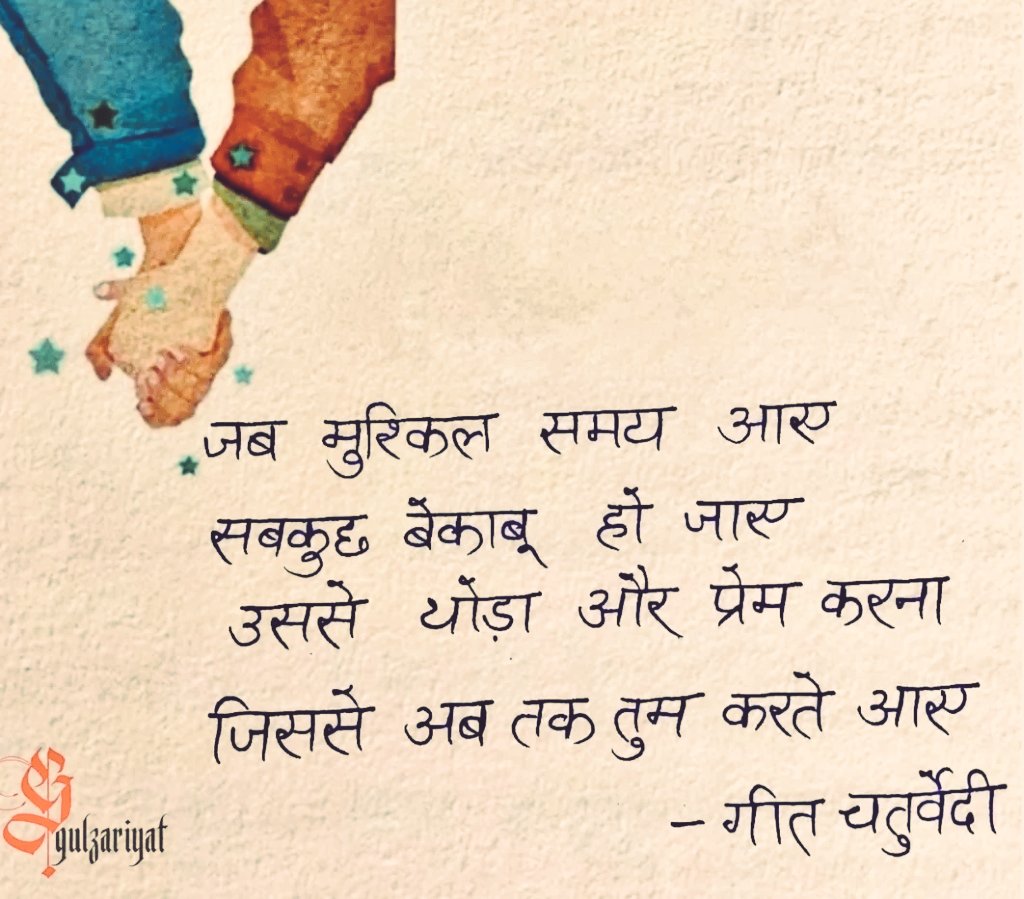 जब मुश्किल समय आए
सबकुछ बेकाबू हो जाए
उससे थोड़ा और प्रेम करना
जिससे अब तक तुम करते आए
- गीत चतुर्वेदी
gulzariyat